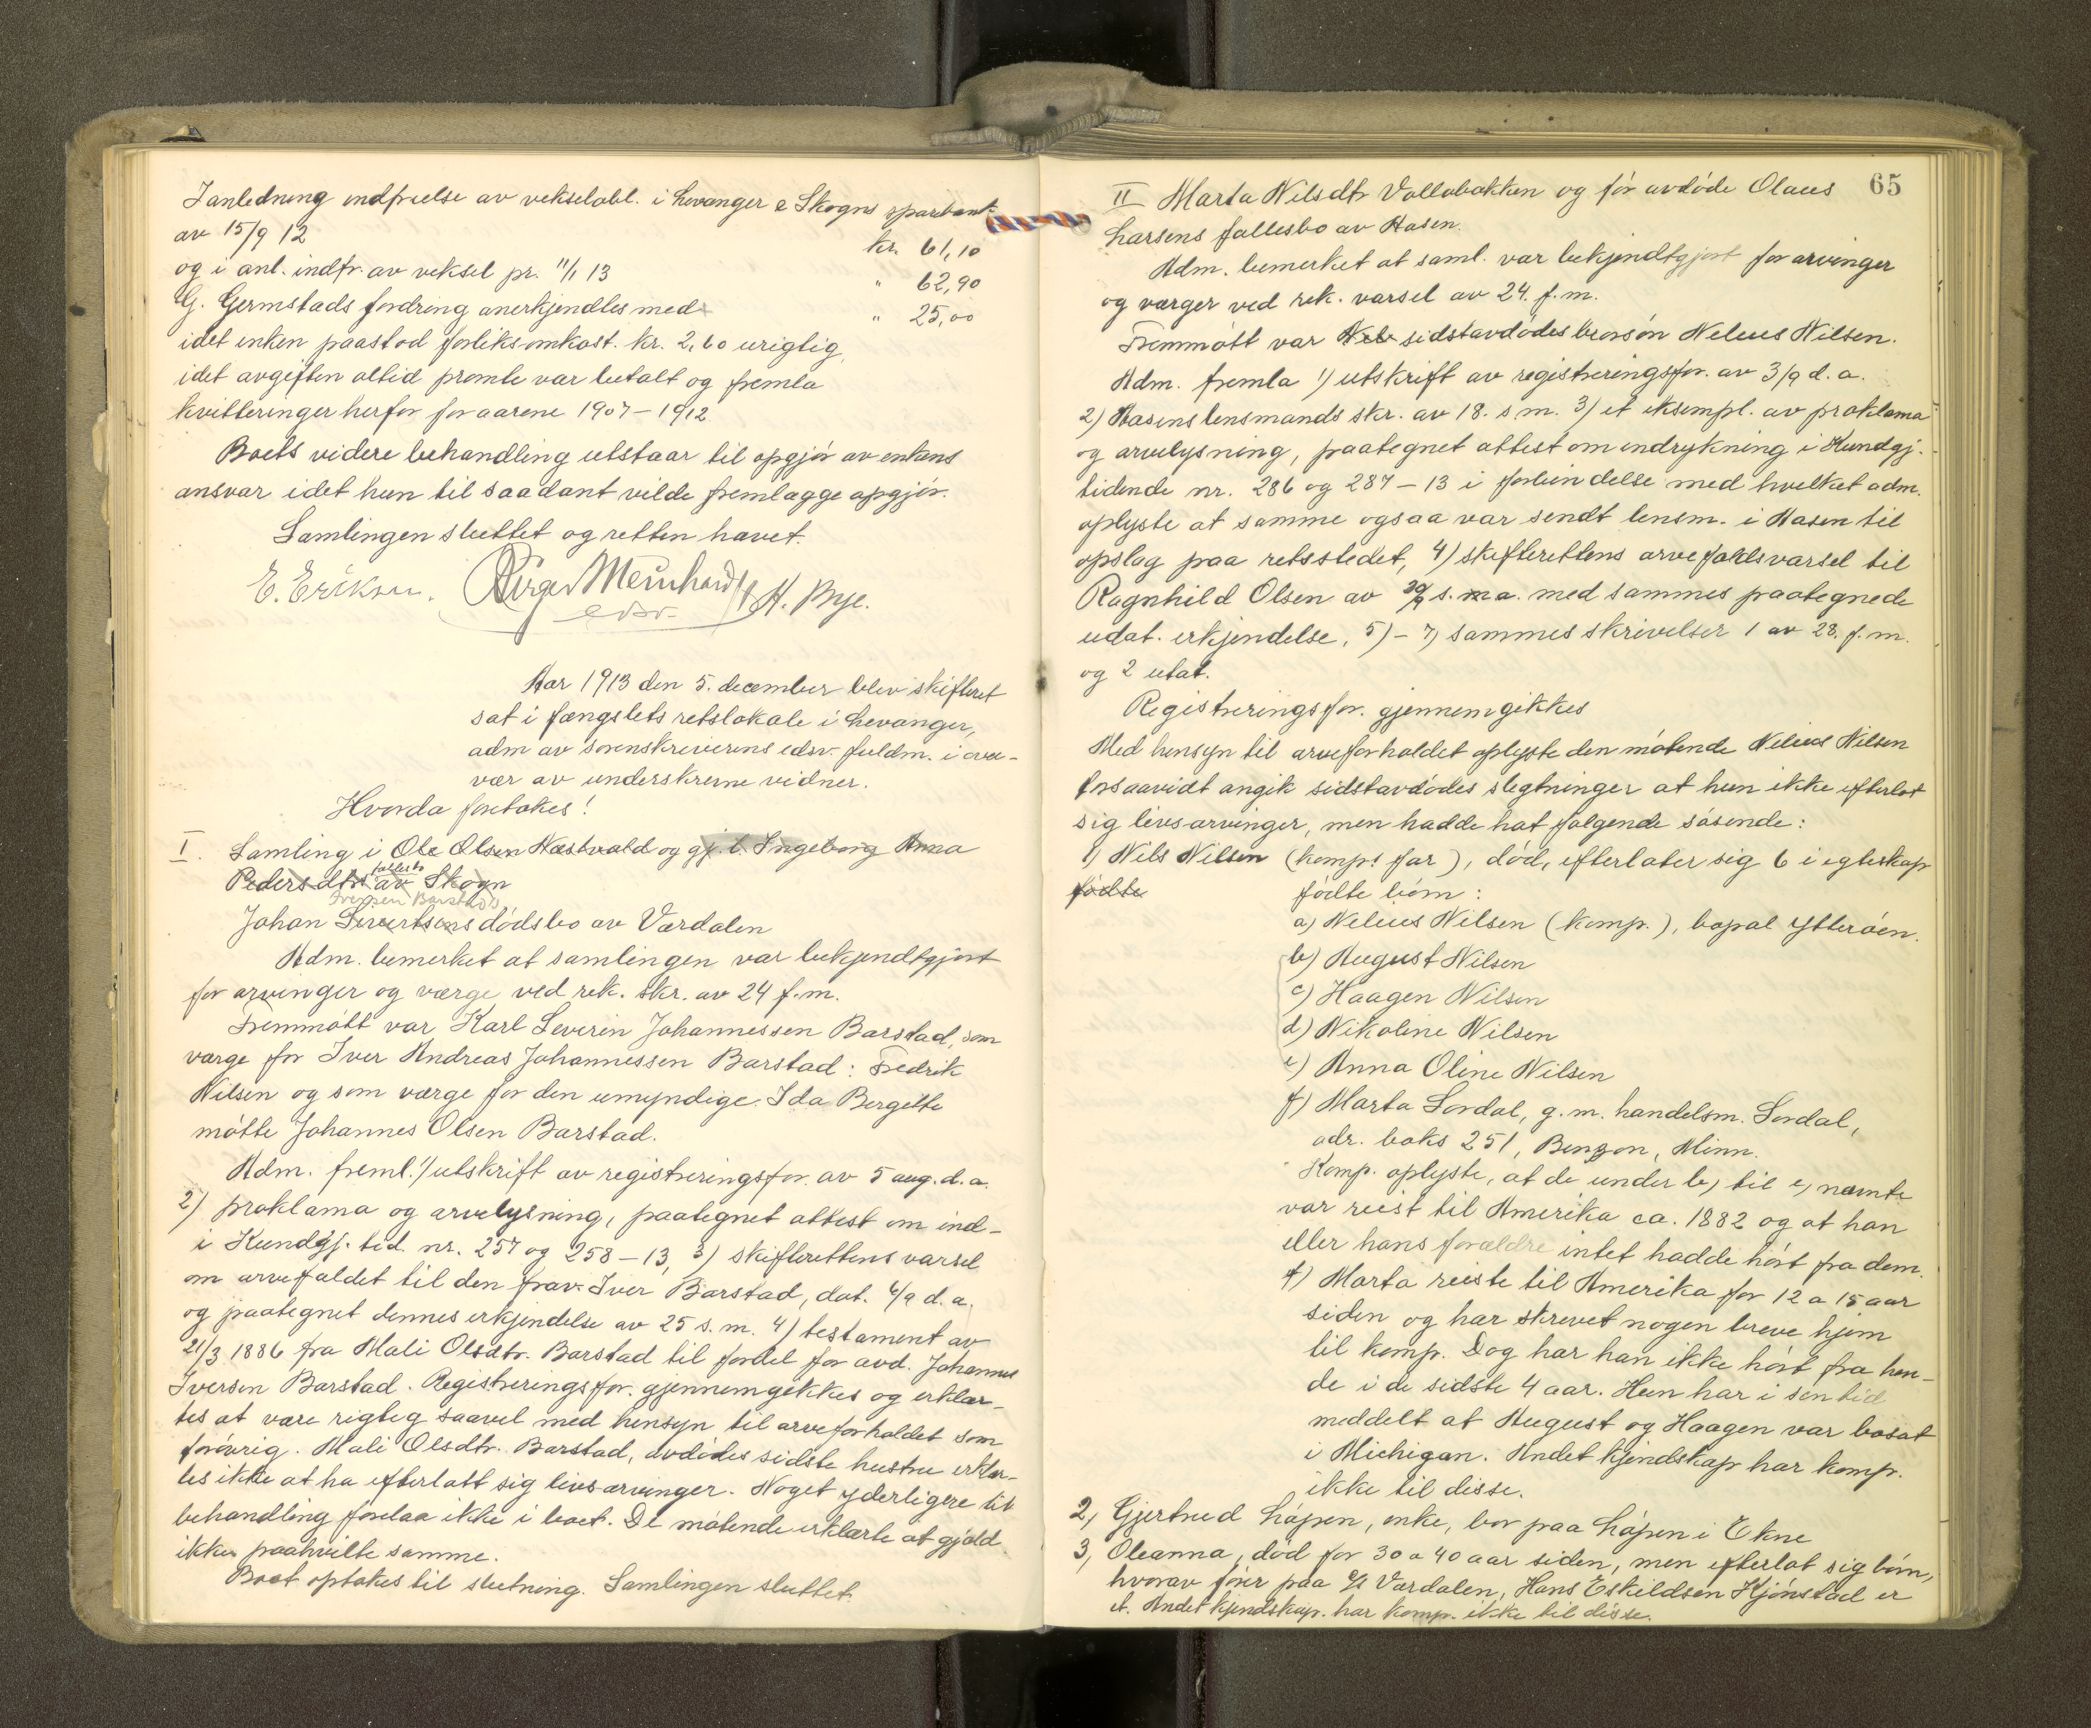 I anledning indfrielse av vekselobl. i Levanger & Skogns sparbank
av 15/9 12 kr. 61,10
og i anl. indfr. av veksel pr. 11/1 13 " 62,90
G. Germstads fordring anerkjendtes med " 25,00
idet enken paastod forliksomkost. kr. 2,60 urigtig,
idet avgiften altid promte var betalt og fremla
kvitteringer herfor for aarene 1907-1912
Boets videre behandling utstaar til opgjør av enkens
ansvar idet hun til saadant vilde fremlægge opgjør.
Samlingen sluttet og retten hævet.
E. Eriksen. Birger Meinhardt H. Bye.
edsv.
Aar 1913 den 5. december blev skifteret
sat i fængslets retslokale i Levanger,
adm av sorenskriverens edsv. fuldm. i over-
vær av underskrevne vidner.
Hvorda foretokes!
I. Samling i Ole Olsen Næstvold og gj. l. Ingeborg Anna
Pedersdtrs fællesbo av Skogn
Iversen Barstads
Johan Sivertsens dødsbo av Værdalen
Adm. bemerket at samlingen var bekjendtgjort
for arvinger og værge ved rek. skr. av 24 f.m.
Fremmøtt var Karl Severin Johannessen Barstad, som
værge for Iver Andreas Johannessen Barstad: Fredrik
Nilsen og som værge for den umyndige Ida Bergitte
møtte Johannes Olsen Barstad.
Adm. freml. 1) utskrift av registreringsfor. av 5 aug. d.a.
2) proklama og arvelysning, paategnet attest om ind-
i Kundgj. tid. nr. 257 og 258-13, 3) skifterettens varsel
om arvefaldet til den frav. Iver Barstad, dat. 4/9 d.a.
og paategnet dennes erkjendelse av 25 s.m. 4) testament av
21/3 1886 fra Mali Olsdtr. Barstad til fordel for avd. Johannes
Iversen Barstad. Registreringsfor. gjennemgikkes og erklær-
tes at være rigtig saavel med hensyn til arveforholdet som
forøvrig. Mali Olsdtr. Barstad, avdødes sidste hustru erklær-
tes ikke at ha efterlatt sig livsarvinger. Noget yderligere til
behandling forelaa ikke i boet. De møtende erklærte at gjæld
ikke paahvilte samme.
Boet optokes til slutning. Samlingen sluttet.
65
II Marta Nilsdtr Vollabakken og før avdøde Olaus
Larsens fællesbo av Aasen.
Adm. bemerket at saml. var bekjendtgjort for arvinger
og værger ved rek. varsel av 24. f.m.
Fremmøtt var Neb sidstavdødes brorsøn Nelius Nilsen.
Adm. fremla 1) utskrift av registreringsfor. av 3/9 d.a.
2) Aasens lensmands skr. av 18. s.m. 3) et eksempl. av proklama
og arvelysning, paategnet attest om indrykning i Kundgj.-
tidende nr. 286 og 287-13 i forbindelse med hvilket adm.
oplyste at samme ogsaa var sendt lensm. i Aasen til
opslag paa retsstedet, 4) skifterettens arvefaldsvarsel til
Ragnhild Olsen av 30/9 s.m a. med sammes paategnede
udat. erkjendelse, 5)-7) sammes skrivelser 1 av 28. f.m.
og 2 udat.
Registreringsfor. gjennemgikkes
Med hensyn til arveforholdet oplyste den møtende Nelius Nilsen
forsaavidt angik sidstavdødes slegtninger at hun ikke efterlot
sig livsarvinger, men hadde hat følgende søsende:
1) Nils Nilsen (komps far), død, efterlater sig 6 i egteskap
fødte fødte børn:
a) Nelius Nilsen (komp.), bopæl Ytterøen.
b) August Nilsen
c) Haagen Nilsen
d) Nikoline Nilsen
e) Anna Oline Nilsen
f) Marta Sordal, g.m. handelsm. Sordal,
adr. boks 251, Benson, Minn.
Komp. oplyste, at de under b) til e) nævnte
var reist til Amerika ca. 1882 og at han
eller hans forældre intet hadde hørt fra dem.
f) Marta reiste til Amerika for 12 a 15 aar
siden og har skrevet nogen breve hjem
til komp. Dog har han ikke hørt fra hen-
de i de sidste 4 aar. Hun har i sen tid
meddelt at August og Haagen var bosat
i Michigan. Andet kjendskap har komp.
ikke til disse.
2, Gjertrud Løpen, enke, bor paa Løpen i Ekne
3, Oleanna, død for 30 a 40 aar siden, men efterlot sig børn,
hvorav paa Værdalen, Hans Eskildsen Hjønstad er
et. Andet kjendskap har komp. ikke til disse.